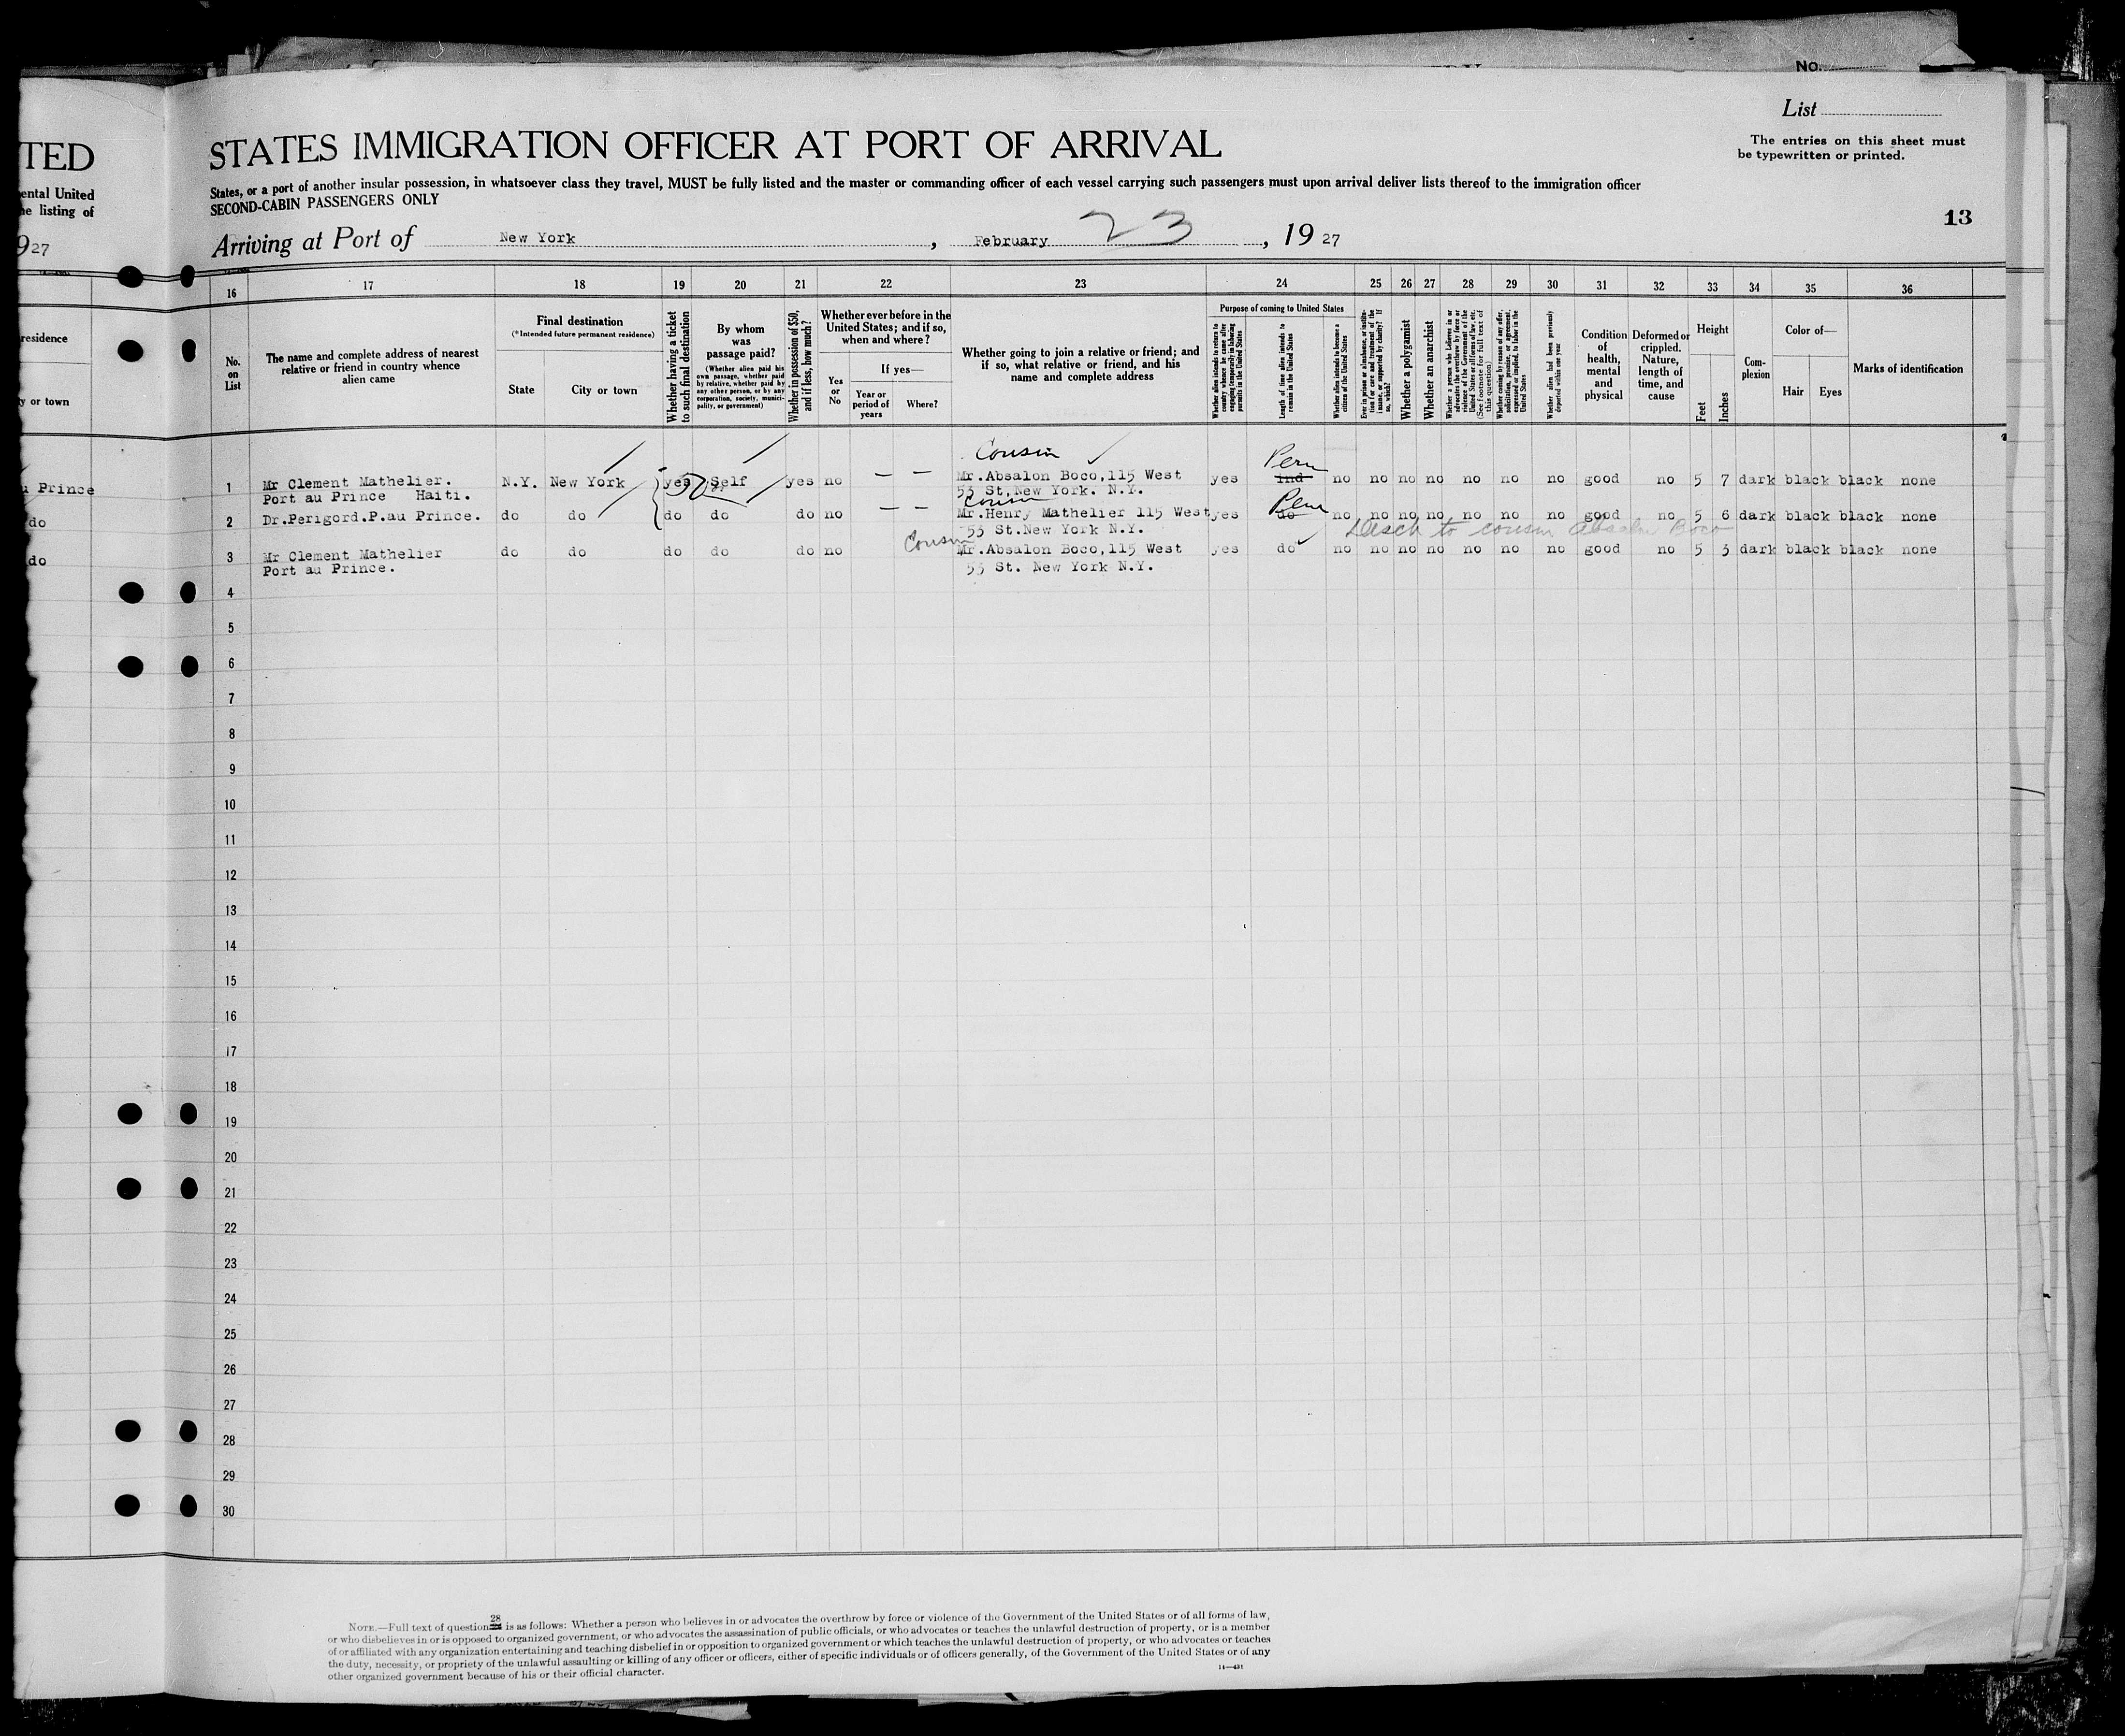 No.
List
TED
STATES IMMIGRATION OFFICER AT PORT OF ARRIVAL
The entries on this sheet must
be typewritten or printed.
ental United
States, or a port of another insular possession, in whatsoever class they travel, MUST be fully listed and the master or commanding officer of each vessel carrying such passengers must upon arrival deliver lists thereof to the immigration officer
e listing of
SECOND-CABIN PASSENGERS ONLY
13
927
Arriving at Port of New York, February 23, 1927
16 17 18 19 20 21 22 23 24 25 26 27 28 29 30 31 32 33 34 35 36
residence
y or town
No. on List
The name and complete address of nearest
relative or friend in country whence
alien came
Final destination
(*Intended future permanent residence)
State
City or town
Whether having a ticket
to such final destination
By whom
was
passage paid?
(Whether alien paid his
own passage, whether paid
by relative, whether paid by
any other person, or by any
corporation, society, munici-
pality, or government)
Whether in possession of $50,
and if less, how much?
Whether ever before in the
United States; and if so,
when and where?
Yes
or
No
If yes—
Year or
period of
years
Where?
Whether going to join a relative or friend; and
if so, what relative or friend, and his
name and complete address
Purpose of coming to United States
Whether alien intends to return to
country whence he came after
engaging temporarily in laboring
pursuits in the United States
Length of time alien intends to
remain in the United States
Whether alien intends to become a
citizen of the United States
Ever in prison or almshouse or institu-
tion for care and treatment of the
insane, or supported by charity? If
so, which?
Whether a polygamist
Whether an anarchist
Whether a person who believes in or
advocates the overthrow by force or
violence of the Government of the
United States or all forms of law, etc.
(See footnote for full text of
this question)
Whether coming by reason of any offer,
solicitation, promise, or agreement,
expressed or implied, to labor in the
United States
Whether alien had been previously
deported within one year
Condition
of
health,
mental
and
physical
Deformed or
crippled.
Nature,
length of
time, and
cause
Height
Feet
Inches
Com-
plexion
Color of—
Hair
Eyes
Marks of identification
Cousin
Peru
u Prince
1 Mr Clement Mathelier. N.Y. New York yes 50 Self yes no — — Mr.Absalon Boco,115 West yes ind no no no no no no no good no 5 7 dark black black none
Port au Prince Haiti. 53 St,New York. N.Y.
Cousin
do
2 Dr.Perigord.P.au Prince. do do do do do no — — Mr.Henry Mathelier 115 West yes do no no no no no no no good no 5 6 dark black black none
53 St.New York N.Y.
to cousin Absalon Boco
Cousin
do
3 Mr Clement Mathelier do do do do do no Mr.Absalon Boco,115 West yes do no no no no no no no good no 5 3 dark black black none
Port au Prince. 53 St. New York N.Y.
4
5
6
7
8
9
10
11
12
13
14
15
16
17
18
19
20
21
22
23
24
25
26
27
28
29
30
28
NOTE.—Full text of question is as follows: Whether a person who believes in or advocates the overthrow by force or violence of the Government of the United States or of all forms of law,
or who disbelieves in or is opposed to organized government, or who advocates the assassination of public officials, or who advocates or teaches the unlawful destruction of property, or is a member
of or affiliated with any organization entertaining and teaching disbelief in or opposition to organized government or which teaches the unlawful destruction of property, or who advocates or teaches
the duty, necessity, or propriety of the unlawful assaulting or killing of any officer or officers, either of specific individuals or of officers generally, of the Government of the United States or of any
other organized government because of his or their official character.
14—431